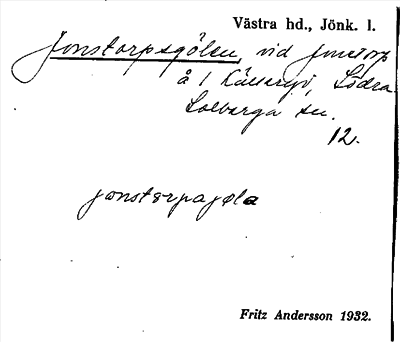 Västra hd., Jönk. l.
Jonstorpsgölen, vid Jonstorp
å 1 Källeryd, Södra
Solberga sn.
12.
jonstorpajøla
Fritz Andersson 1932.